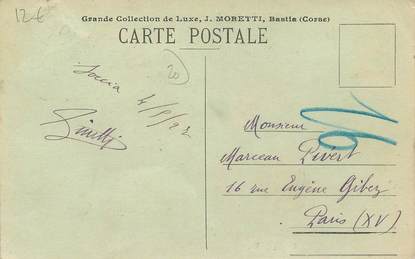 12 €
Grande Collection de Luxe, J. MORETTI, Bastia (Corse)
CARTE POSTALE
20
Soccia
Monsieur
Marceau Pivert
16 rue Eugène Gibez
Paris (XV)